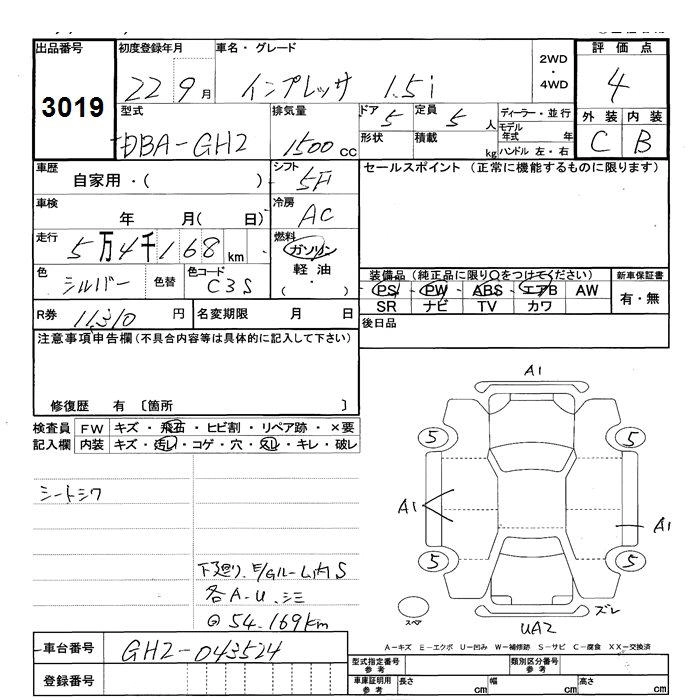 出品番号 初度登録年月 車名・グレード 2WD・4WD 評価点
3019 22 9月 インプレッサ 1.5i 4
型式 排気量 ドア 5 定員 5人 ディーラー・並行 外装 内装
DBA-GH2 1500cc 形状 積載 kg モデル年式 年 C B
ハンドル 左・右
車歴 シフト セールスポイント (正常に機能するものに限ります)
自家用・( ) 5F
車検 冷房
年 月( 日) AC
走行 燃料
5万4千168km ガソリン
色 色替 色コード 軽油
シルバー C3S (・)
装備品(純正品に限り○をつけてください) 新車保証書
PS PW ABS エアB AW 有・無
SR ナビ TV カワ
R券 11,310円 名変期限 月 日 後日品
注意事項申告欄(不具合内容等は具体的に記入して下さい)
修復歴 有 〔箇所 〕
検査員 FW キズ・飛石・ヒビ割・リペア跡・×要
記入欄 内装 キズ・汚レ・コゲ・穴・スレ・キレ・破レ
シートシワ
下廻り、E/Gルーム内S
各A-U、シミ
◎54.169km
A1
5 5
A1 A1
5 5
スペア
ズレ
UA2
A-キズ E-エクボ U-凹み W-補修跡 S-サビ C-腐食 XX-交換済
車台番号 GH2-043524
登録番号
型式指定番号 参考 類別区分番号 参考
車庫証明用 参考 長さ cm 幅 cm 高さ cm